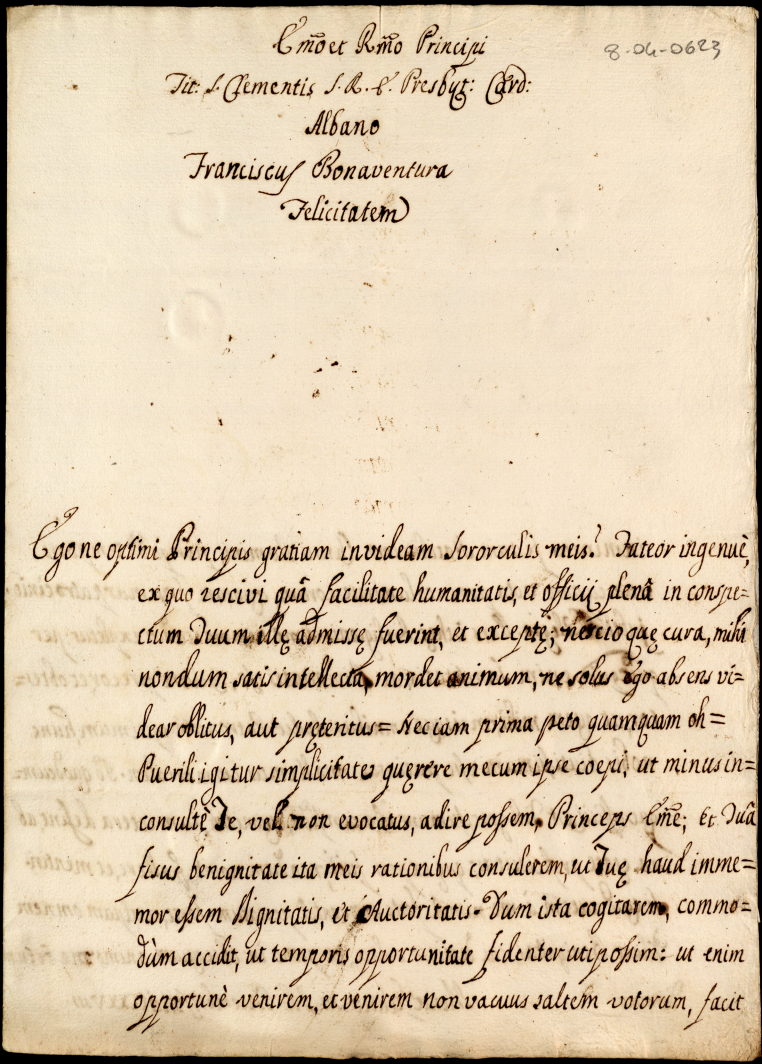 8-04-0623
Em̃o et Rm̃o Principi
Tit: S. Clementis S. R. E. Presbyt: Card:
Albano
Franciscus Bonaventura
Felicitatem
Egone optimi Principis gratiam invideam Sororculis meis? Fateor ingenuè,
ex quo rescivi quâ facilitate humanitatis, et officij plenâ in conspe=
ctum Tuum illę admissę fuerint, et exceptę; nescio quę cura, mihi
nondum satis intellecta, mordet animum, ne solus Ego absens vi=
dear oblitus, aut pręteritus= Nec iam prima peto quamquam oh=
Puerili igitur simplicitate quęrere mecum ipse coepi, ut minus in=
consultè Te, vel non evocatus, adire possem, Princeps Em̃e; Et Tuâ
fisus benignitate ita meis rationibus consulerem, ut Tuę haud imme=
mor essem Dignitatis, et Auctoritatis. Dum ista cogitarem, commo=
dùm accidit, ut temporis opportunitate fidenter uti possim: ut enim
opportunè venirem, et venirem non vacuus saltem votorum, facit